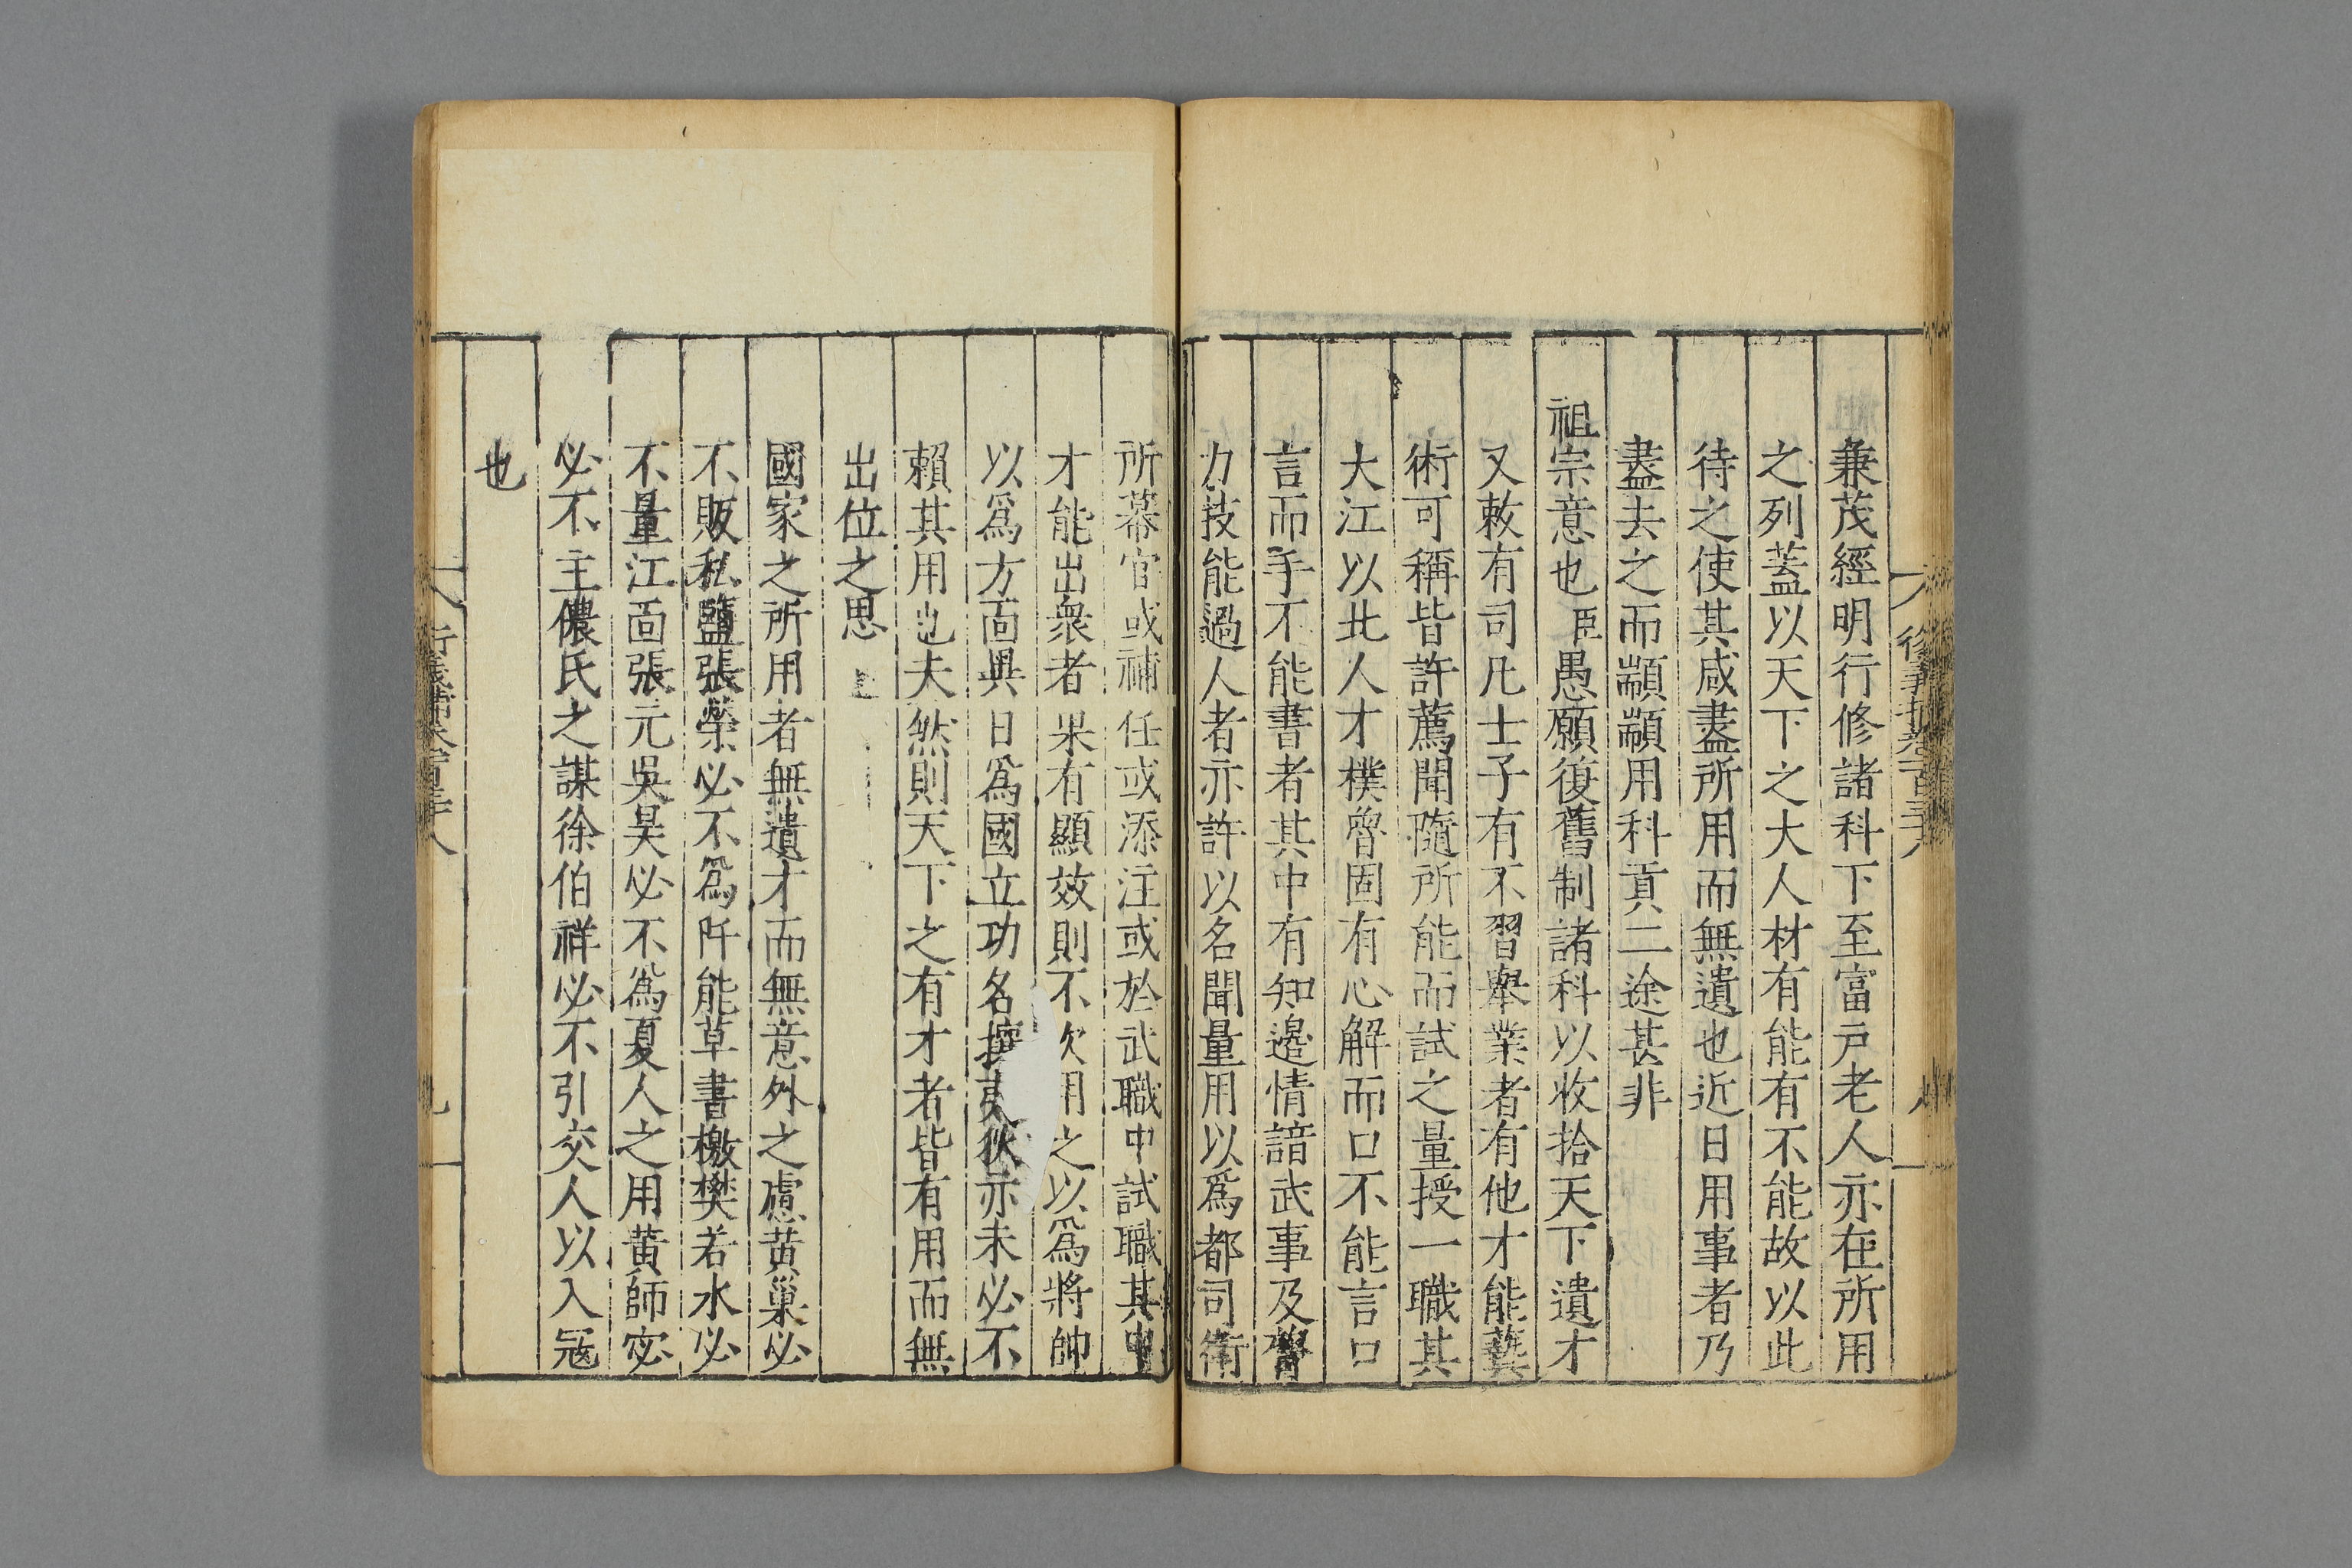 兼茂經明行修諸科下至富戶老人亦在所用
之列蓋以天下之大人材有能有不能故以此
待之使其咸盡所用而無遺也近日用事者乃
盡去之而顓顓用科貢二途甚非
祖宗意也臣愚願復舊制諸科以收拾天下遺才
又敕有司凡士子有不習舉業者有他才能藝
術可稱皆許薦聞隨所能而試之量授一職其
大江以北人才樸魯固有心解而口不能言口
言而手不能書者其中有知邊情諳武事及膂
力技能過人者亦許以名聞量用以爲都司衛
所幕官或補任或添注或於武職中試職其中
才能出衆者果有顯效則不次用之以爲將帥
以爲方面異日爲國立功名攘夷狄亦未必不
賴其用也夫然則天下之有才者皆有用而無
出位之思
國家之所用者無遺才而無意外之慮黃巢必
不販私鹽張榮必不爲阡能草書檄樊若水必
不量江面張元吳昊必不爲夏人之用黃師宓
必不主儂氏之謀徐伯祥必不引交人以入寇
也